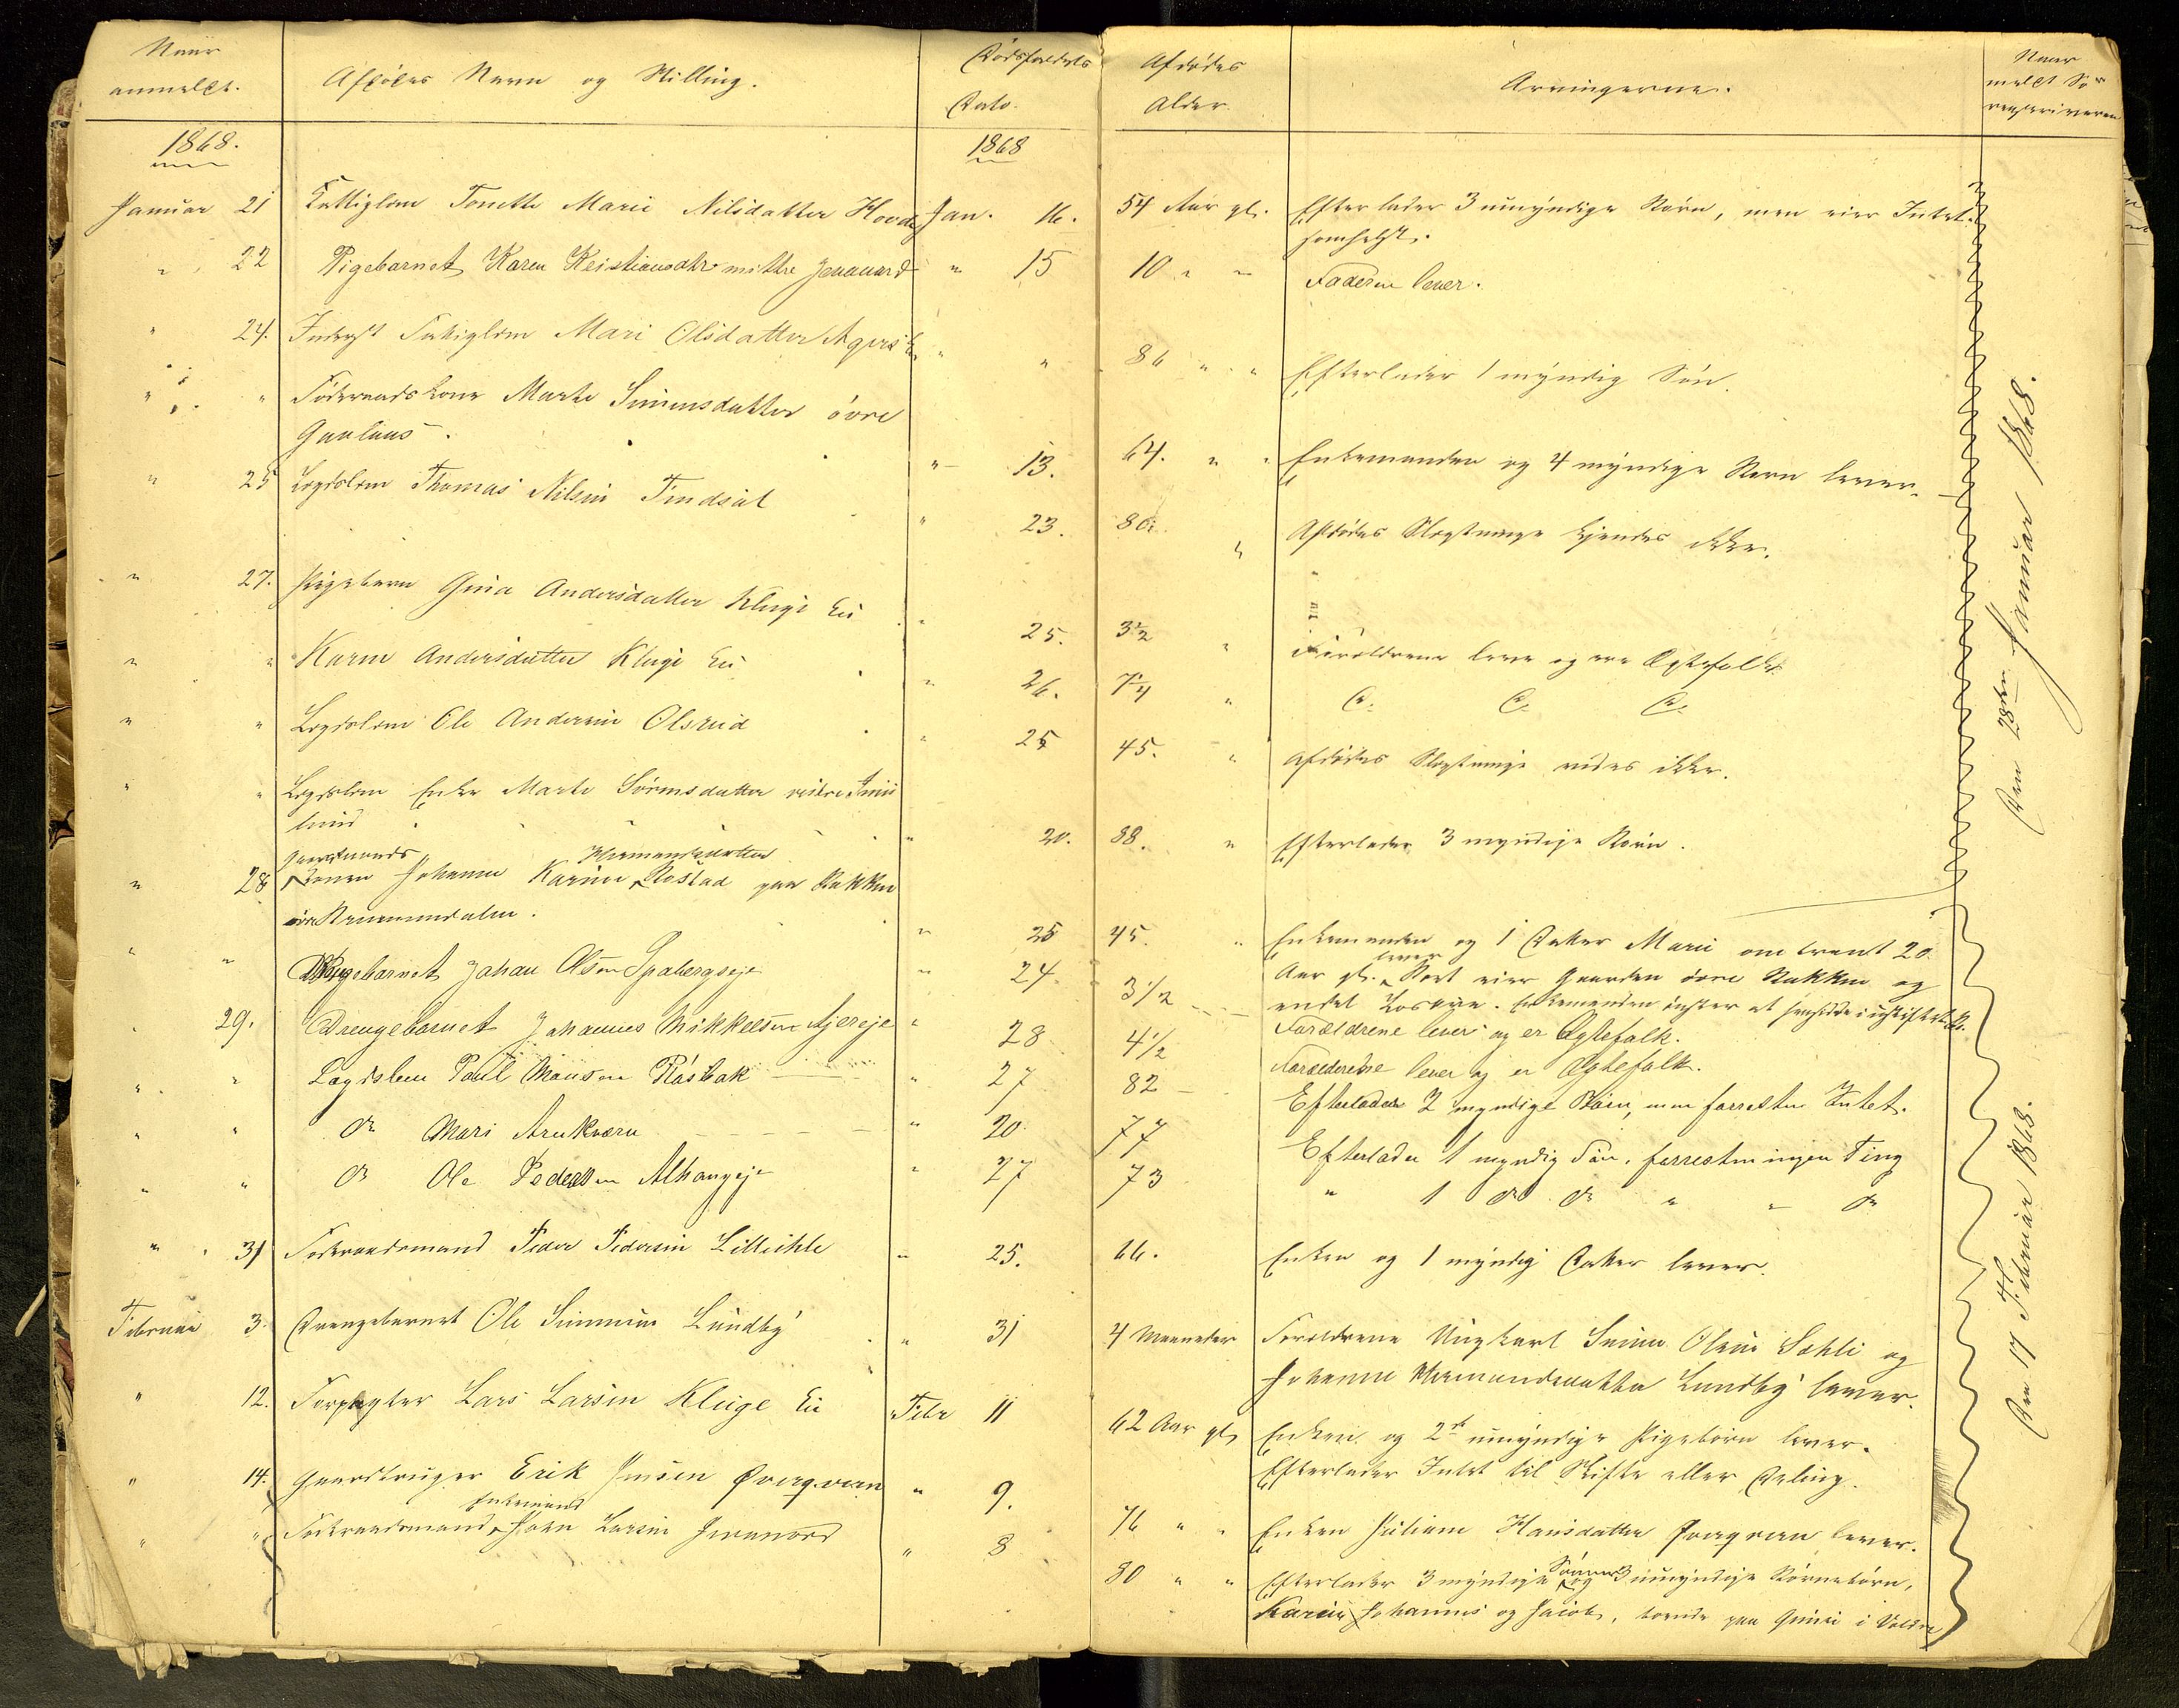 Naar anmeldt. Afdødes Navn og Stilling. Dødsfaldets Dato. Afdødes Alder. Arvingerne. Naar meldt Sorenskriveren
1868. 1868
Januar 21 Fattiglem Tonette Marie Nilsdatter Hovde Jan. 16. 54 Aar gl. Efterlader 3 umyndige Børn, men eier Intet
somhelst.
" 22 Pigebarnet Karen Kristiansdtr mittre " 15 10 " " Faderen lever.
" 24. Inderst Fattiglem Mari Olsdatter " " 86 " " Efterlader 1 myndig Søn.
" " Føderaadskone Marte Simensdatter øvre
" 13. 64. " " Enkemanden og 4 myndige Børn lever.
" 25 Lægdslem Thomas Nilsen " 23. 80. " Afdødes Slægtninge kjendes ikke.
" 27. Pigebarn Gina Andersdatter Kluge Ei " 25. 3½ " Forældrene leve og ere Ægtefolk.
" " Karen Andersdatter Kluge Ei " 26. 7¼ " Do. Do. Do.
" " Lægdslem Ole Andersen Olsrud " 25 45. " Afdødes Slægtninge vides ikke.
" " Lægdslem Enke Marte Sørensdatter
" 20. 88. " Efterlader 3 myndige Børn.
" 28 Gaardmands Konen Johanne Karine Hermandsdatter Rostad paa Bakken
" 25 45. " Enkemanden og 1 Datter Marie omtrent 20
Aar gl. lever. Boet eier Gaarden øvre Bakken og
endel Løsøre. Enkemanden ønsker at hensidde i uskiftet Bo.
" " Drengebarnet Johan Olsen Spabergseje " 24. 3½ Forældrene lever og er Ægtefolk.
" 29. Drengebarnet Johannes Mikkelsen " 28 4½ Forældrene lever og er Ægtefolk.
" " Lægdslem Poul Monsen Råsbak " 27 82 Efterlader 2 myndige Børn, men forresten Intet.
" " Do Mari Arnkværn " 20. 77 Efterlader 1 myndig Søn, forresten ingen Ting
" " Do Ole Pedersen Alhaugeje " 27 73 " 1 do do " " do
" 31 Føderaadsmand Peder Pedersen Lilleihle " 25. 66. Enken og 1 myndig Datter lever.
Februar 3. Drengebarnet Ole Simensen Lundby " 31 4 Maaneder Forældrene Ungkarl Simen Olsen Sæhli og
Johanne Hermandsdatter Lundby lever.
" 12. Forpagter Lars Larsen Kluge Ei Febr 11 62 Aar gl. Enken og 2de umyndige Pigebørn lever.
Efterlader Intet til Skifte eller Deling.
" 14. Gaardbruger Erik Jensen Qværgværn " 9. 76 " " Enken Juliane Hansdatter lever.
" " Føderaadsmand Enkemand John Larsen " 8 80 " " Efterlader 3 myndige Sønner og 3 umyndige Børnebørn,
Karine, Johannes og Jacob, boende paa i
Den 28den Januar 1868.
Den 17 Februar 1868.